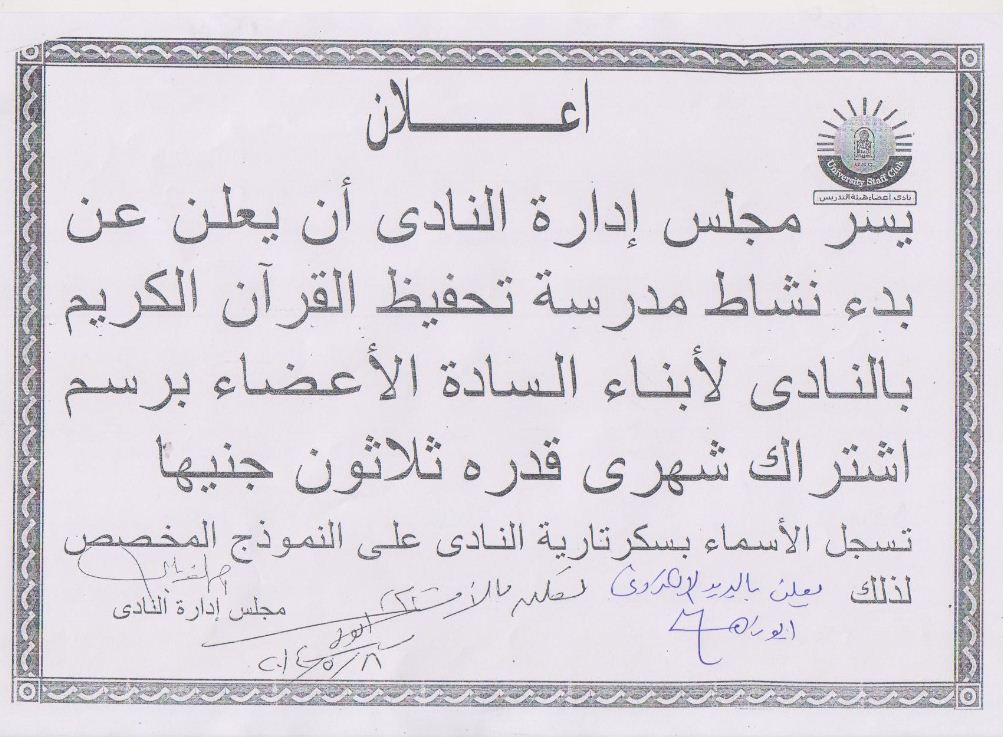 اعـــــــلان
University Staff Club
نادى اعضاء هيئة التدريس
يسر مجلس إدارة النادى أن يعلن عن
بدء نشاط مدرسة تحفيظ القرآن الكريم
بالنادى لأبناء السادة الأعضاء برسم
اشتراك شهرى قدره ثلاثون جنيها
تسجل الأسماء بسكرتارية النادى على النموذج المخصص
لذلك
يعلن بالبريد الالكترونى
مجلس إدارة النادى